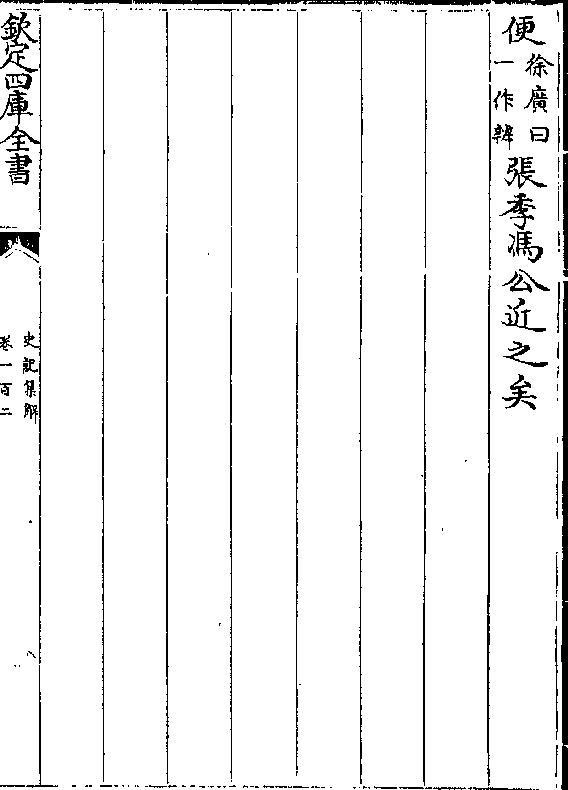 便徐廣曰一作辨張季馮公近之矣
欽定四庫全書
史記集解
卷一百二